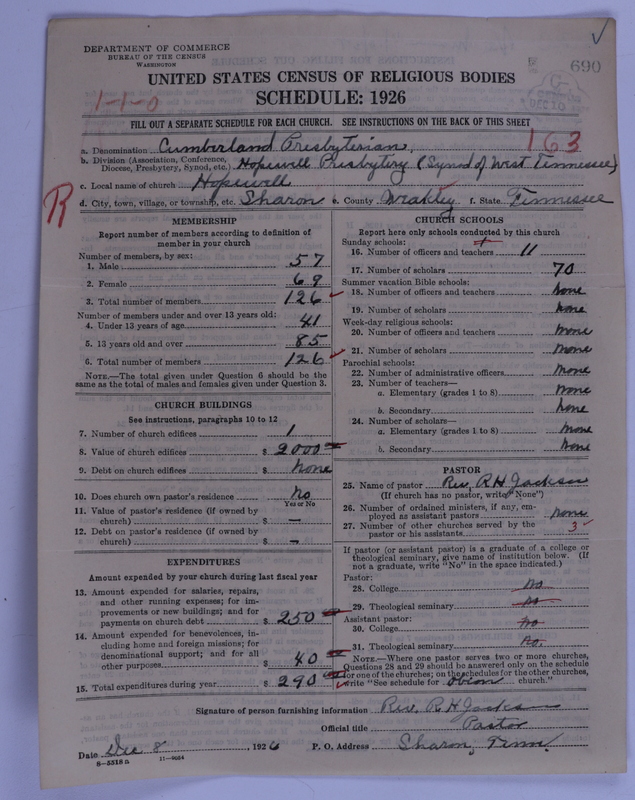 DEPARTMENT OF COMMERCE
BUREAU OF THE CENSUS
WASHINGTON
690
UNITED STATES CENSUS OF RELIGIOUS BODIES
1-1-0
SCHEDULE: 1926
DEC 10
FILL OUT A SEPARATE SCHEDULE FOR EACH CHURCH. SEE INSTRUCTIONS ON THE BACK OF THIS SHEET
163
a. Denomination Cumberland Presbyterian,
b. Division (Association, Conference, Diocese, Presbytery, Synod, etc.) Hopewell Presbytery (Synod of West Tennessee)
c. Local name of church Hopewell
R
d. City, town, village, or township, etc. Sharon e. County Weakley f. State Tennessee
MEMBERSHIP
Report number of members according to definition of
member in your church
Number of members, by sex:
1. Male 57
2. Female 69
3. Total number of members 126
Number of members under and over 13 years old:
4. Under 13 years of age 41
5. 13 years old and over 85
6. Total number of members 126
NOTE.—The total given under Question 6 should be
same as the total of males and females given under Question 3.
CHURCH BUILDINGS
See instructions, paragraphs 10 to 12
7. Number of church edifices 1
8. Value of church edifices $ 2000
9. Debt on church edifices $ None
10. Does church own pastor's residence No
Yes or No
11. Value of pastor's residence (if owned by
church) $ —
12. Debt on pastor's residence (if owned by
church) $ —
EXPENDITURES
Amount expended by your church during last fiscal year
13. Amount expended for salaries, repairs,
and other running expenses; for im-
provements or new buildings; and for
payments on church debt $ 250
14. Amount expended for benevolences, in-
cluding home and foreign missions; for
denominational support; and for all
other purposes $ 40
15. Total expenditures during year $ 290
CHURCH SCHOOLS
Report here only schools conducted by this church
Sunday schools:
16. Number of officers and teachers 11
17. Number of scholars 70
Summer vacation Bible schools:
18. Number of officers and teachers None
19. Number of scholars None
Week-day religious schools:
20. Number of officers and teachers None
21. Number of scholars None
Parochial schools:
22. Number of administrative officers None
23. Number of teachers—
a. Elementary (grades 1 to 8) None
b. Secondary None
24. Number of scholars—
a. Elementary (grades 1 to 8) None
b. Secondary None
PASTOR
25. Name of pastor Rev. R H Jackson
(If church has no pastor, write "None")
26. Number of ordained ministers, if any, em-
ployed as assistant pastors None
27. Number of other churches served by the
pastor or his assistants 3
If pastor (or assistant pastor) is a graduate of a college or
theological seminary, give name of institution below. (If
not a graduate, write "No" in the space indicated.)
Pastor:
28. College No
29. Theological seminary No
Assistant pastor:
30. College No
31. Theological seminary No.
NOTE.—Where one pastor serves two or more churches,
Questions 28 and 29 should be answered only on the schedule
for one of the churches; on the schedules for the other churches,
write "See schedule for Obion church."
Signature of person furnishing information Rev. R H Jackson
Official title Pastor
Date Dec 8 1926 P. O. Address Sharon, Tenn.
8-5518a 11-9054